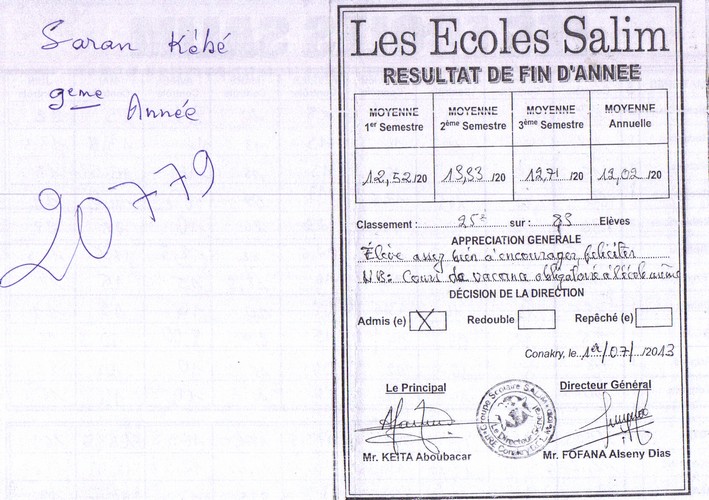 Saran Kébé
9ème Année
20779
Les Ecoles Salim
RESULTAT DE FIN D'ANNEE
MOYENNE 1er Semestre
MOYENNE 2ème Semestre
MOYENNE 3ème Semestre
MOYENNE Annuelle
12,52/20
13,33/20
12,71/20
12,02/20
Classement : 25è sur : 83 Elèves
APPRECIATION GENERALE
Élève assez bien à encourager féliciter
NB: Cours de vacance obligatoire à l'école même
DÉCISION DE LA DIRECTION
Admis (e) X Redouble Repêché (e)
Conakry, le 1er/07/2013
Le Principal
Directeur Général
Mr. KEITA Aboubacar
Mr. FOFANA Alseny Dias